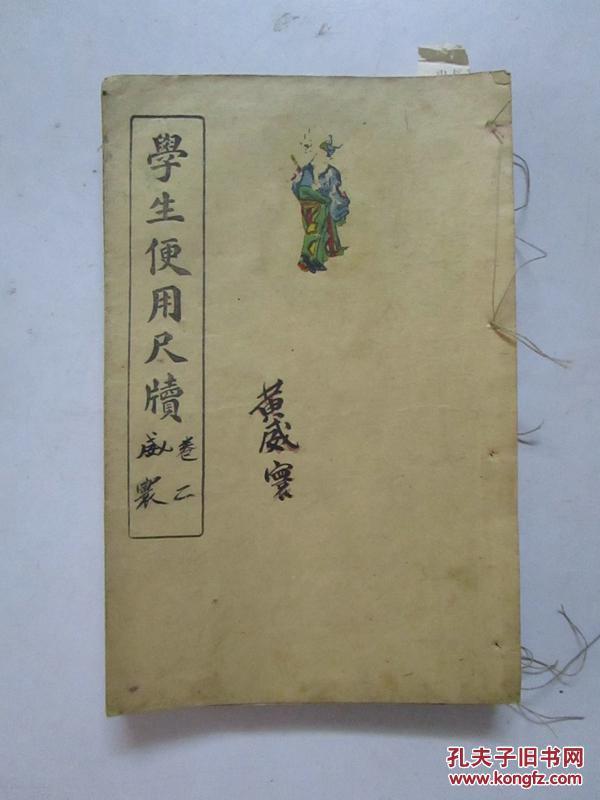 學生便用尺牘
卷二
威寰
黄威寰
孔夫子旧书网
www.kongfz.com